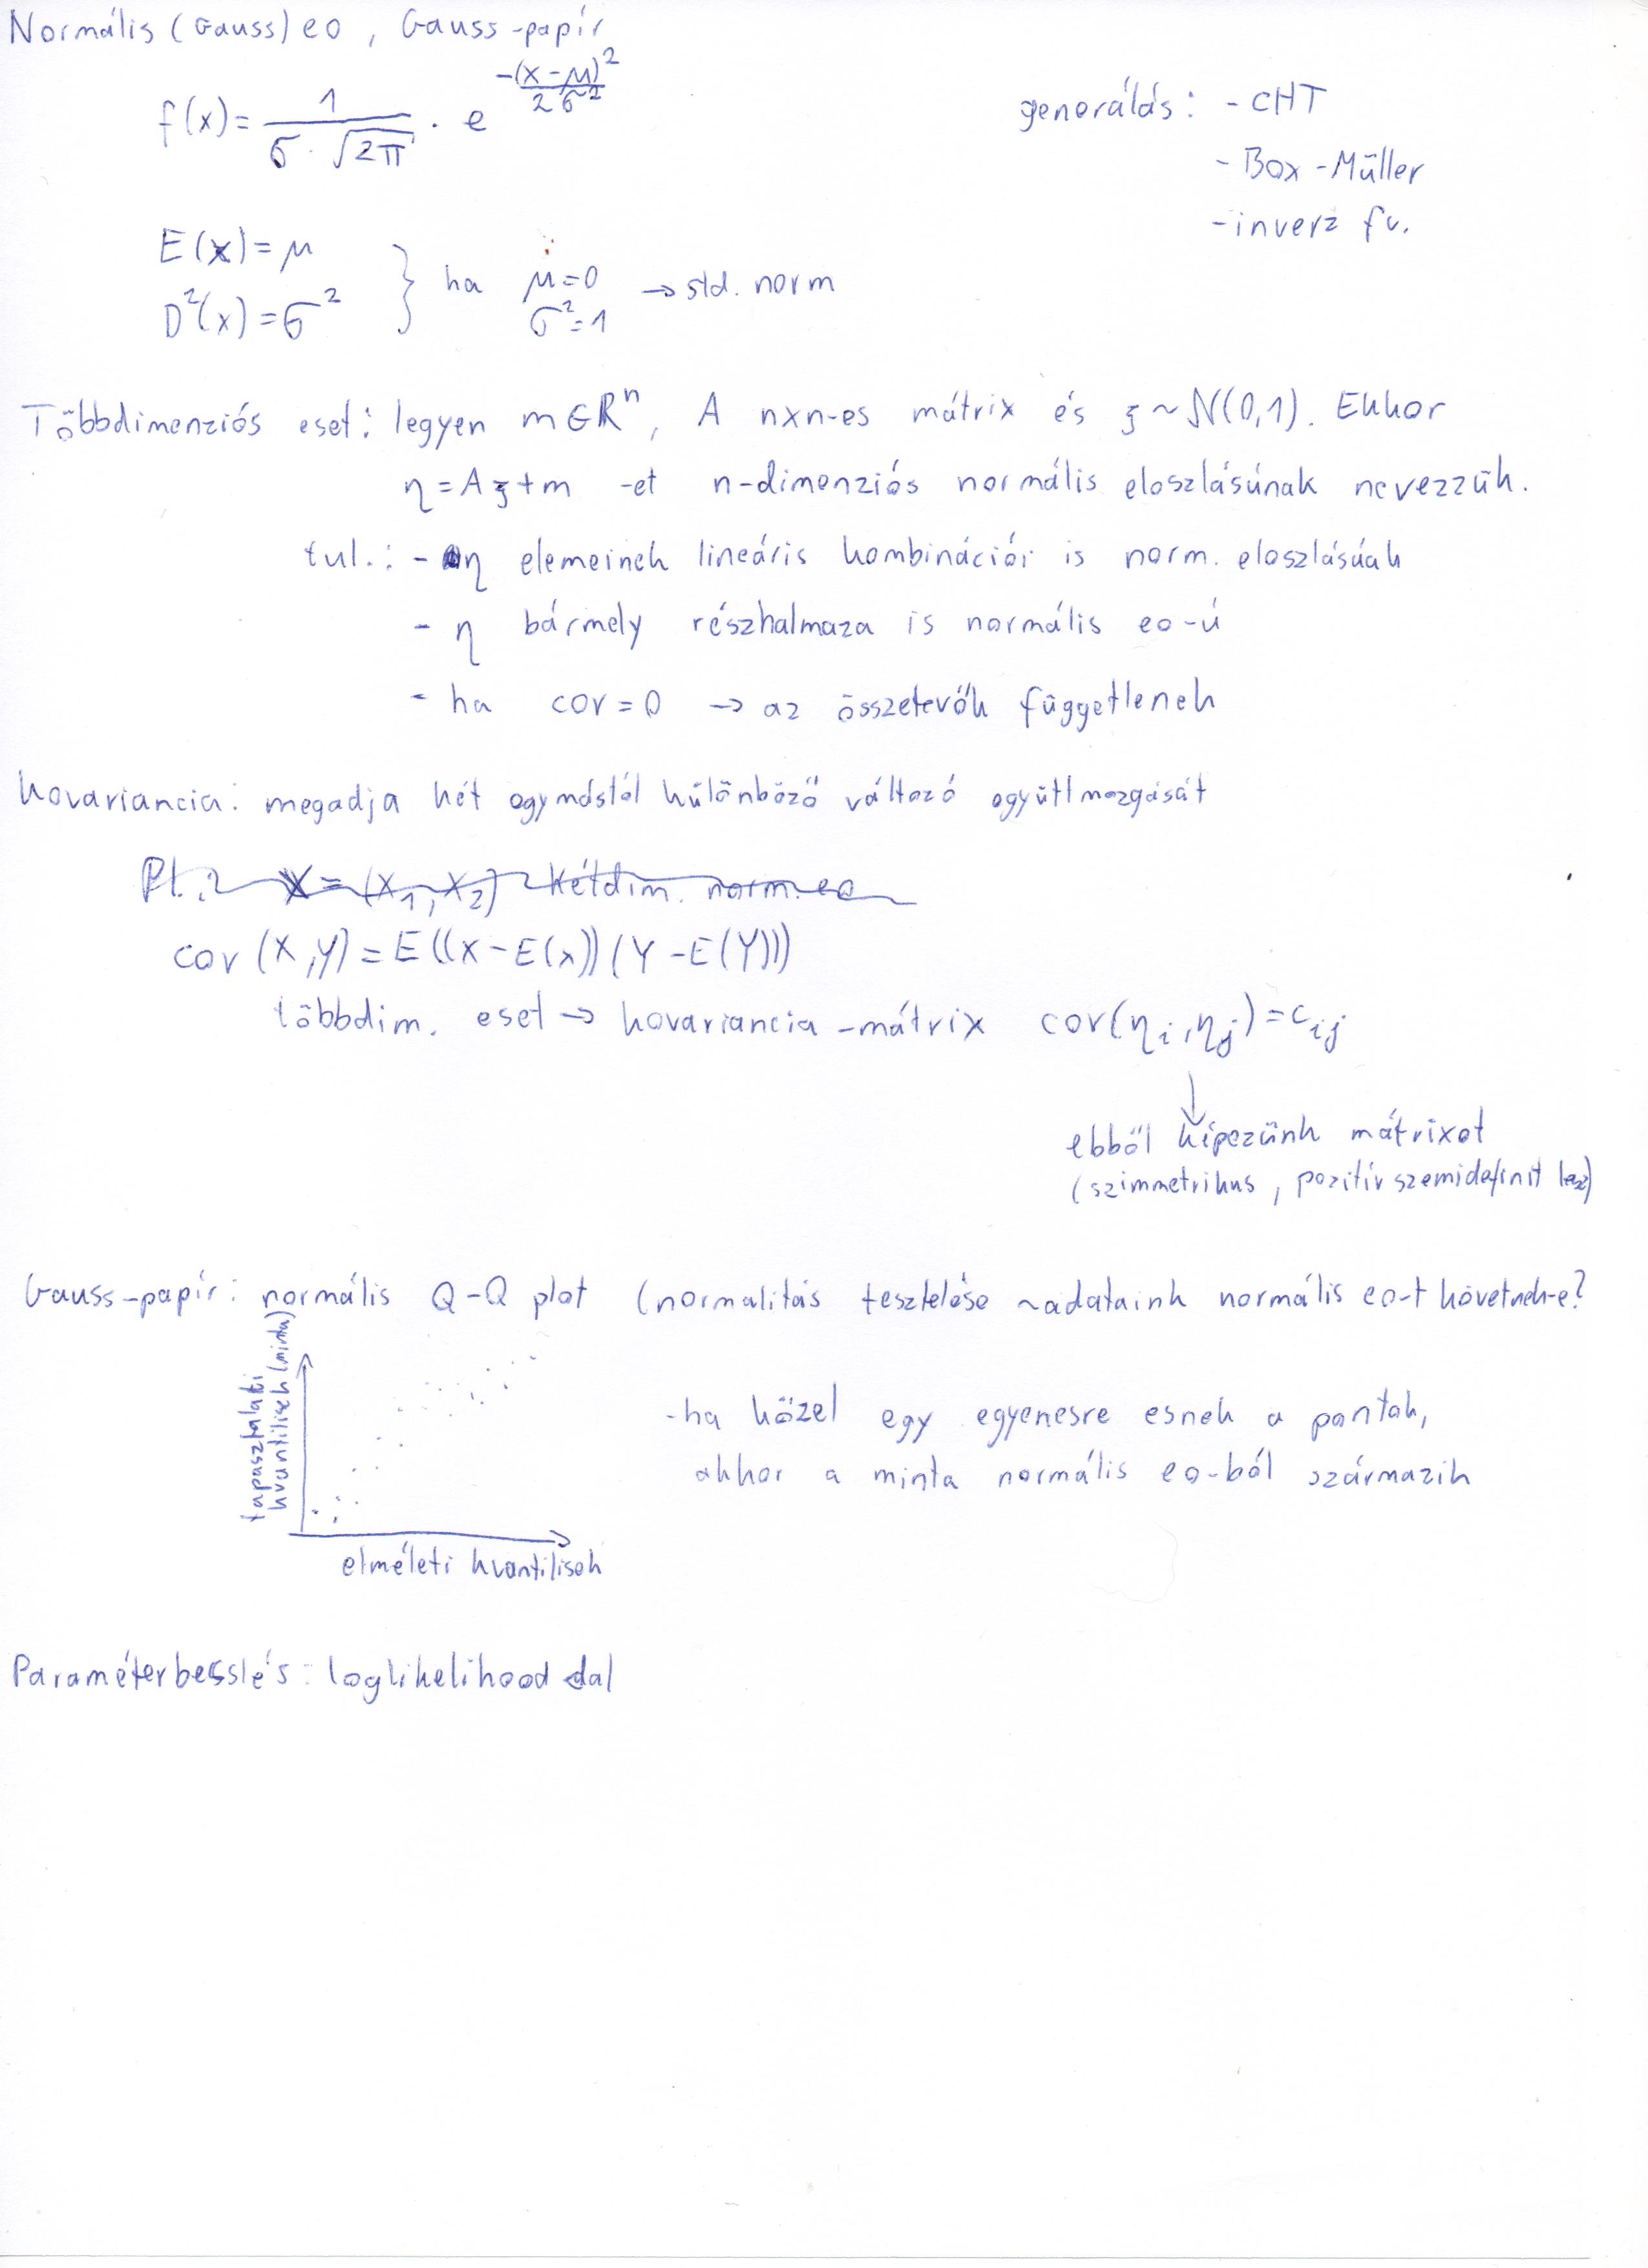 Normális (Gauss) eo, Gauss-papír
f(x) = 1 / (σ · √2π) · e^(-(x-μ)² / 2σ²)
generálás: - CHT
- Box-Müller
- inverz fv.
E(x) = μ
D²(x) = σ²
} ha μ=0 → std. norm
σ²=1
Többdimenziós eset: legyen m∈ℝⁿ, A nxn-es mátrix és ξ ~ N(0,1). Ekkor
η = Aξ+m -et n-dimenziós normális eloszlásúnak nevezzük.
tul.: - η elemeinek lineáris kombinációi is norm. eloszlásúak
- η bármely részhalmaza is normális eo-ú
- ha cov = 0 → az összetevők függetlenek
kovariancia: megadja két egymástól különböző változó együttmozgását
Pl.: X = (X₁, X₂) kétdim. norm. eo
cov (X,Y) = E((X-E(x))(Y-E(Y)))
többdim. eset → kovariancia-mátrix cov(ηi,ηj) = cij
↓
ebből képezünk mátrixot
(szimmetrikus, pozitív szemidefinit lesz)
Gauss-papír: normális Q-Q plot (normalitás tesztelése ~adataink normális eo-t követnek-e?
tapasztalati
kvantilisek (minta)
-ha közel egy egyenesre esnek a pontok,
akkor a minta normális eo-ból származik
elméleti kvantilisek
Paraméterbecslés: loglikelihood dal